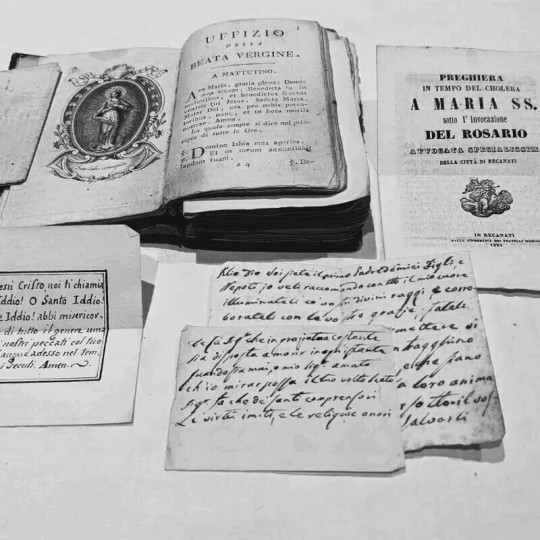 UFFIZIO
DELLA
BEATA VERGINE.
A MATTUTINO.
Ave Maria, gratia plena: Domi-
nus tecum: Benedicta tu in
mulieribus, et benedictus fructus
ventris tui Jesus. Sancta Maria,
Mater Dei, ora pro nobis pecca-
toribus, nunc, et in hora mortis
nostrae. Amen.
La quale sempre si dice nel prin-
cipio di tutte le Ore.
Domine labia mea aperies.
℟. Et os meum annuntiabit
laudem tuam. ℣. De-
a 4
PREGHIERA
IN TEMPO DEL CHOLERA
A MARIA SS.
sotto l'invocazione
DEL ROSARIO
AVVOCATA SPECIALISSIMA
DELLA CITTÀ DI RECANATI
IN RECANATI
esù Cristo, noi ti chiamia
Iddio! O Santo Iddio!
e Iddio! abbi misericor.
di tutto il genere uma
nostri peccati col tuo
angue adesso nel tem.
i Secoli. Amen.
Mio Dio voi siete il primo Padre de miei Figli, e
Nepoti, jo veli raccomando con tto il mio cuore
illuminateli co' vostri divini raggi, e corro
borateli con la vostra grazia, fateli
mettere vi
loro anima
Salvarti
che in
sia disposta a morir in ogni istante
quando sta mai, o mio Sigr. amato
ch'io mirar possa il tuo volto beato
Sigr. fa che de' Santi comprensori
Le virtù imiti, e le reliquie onori